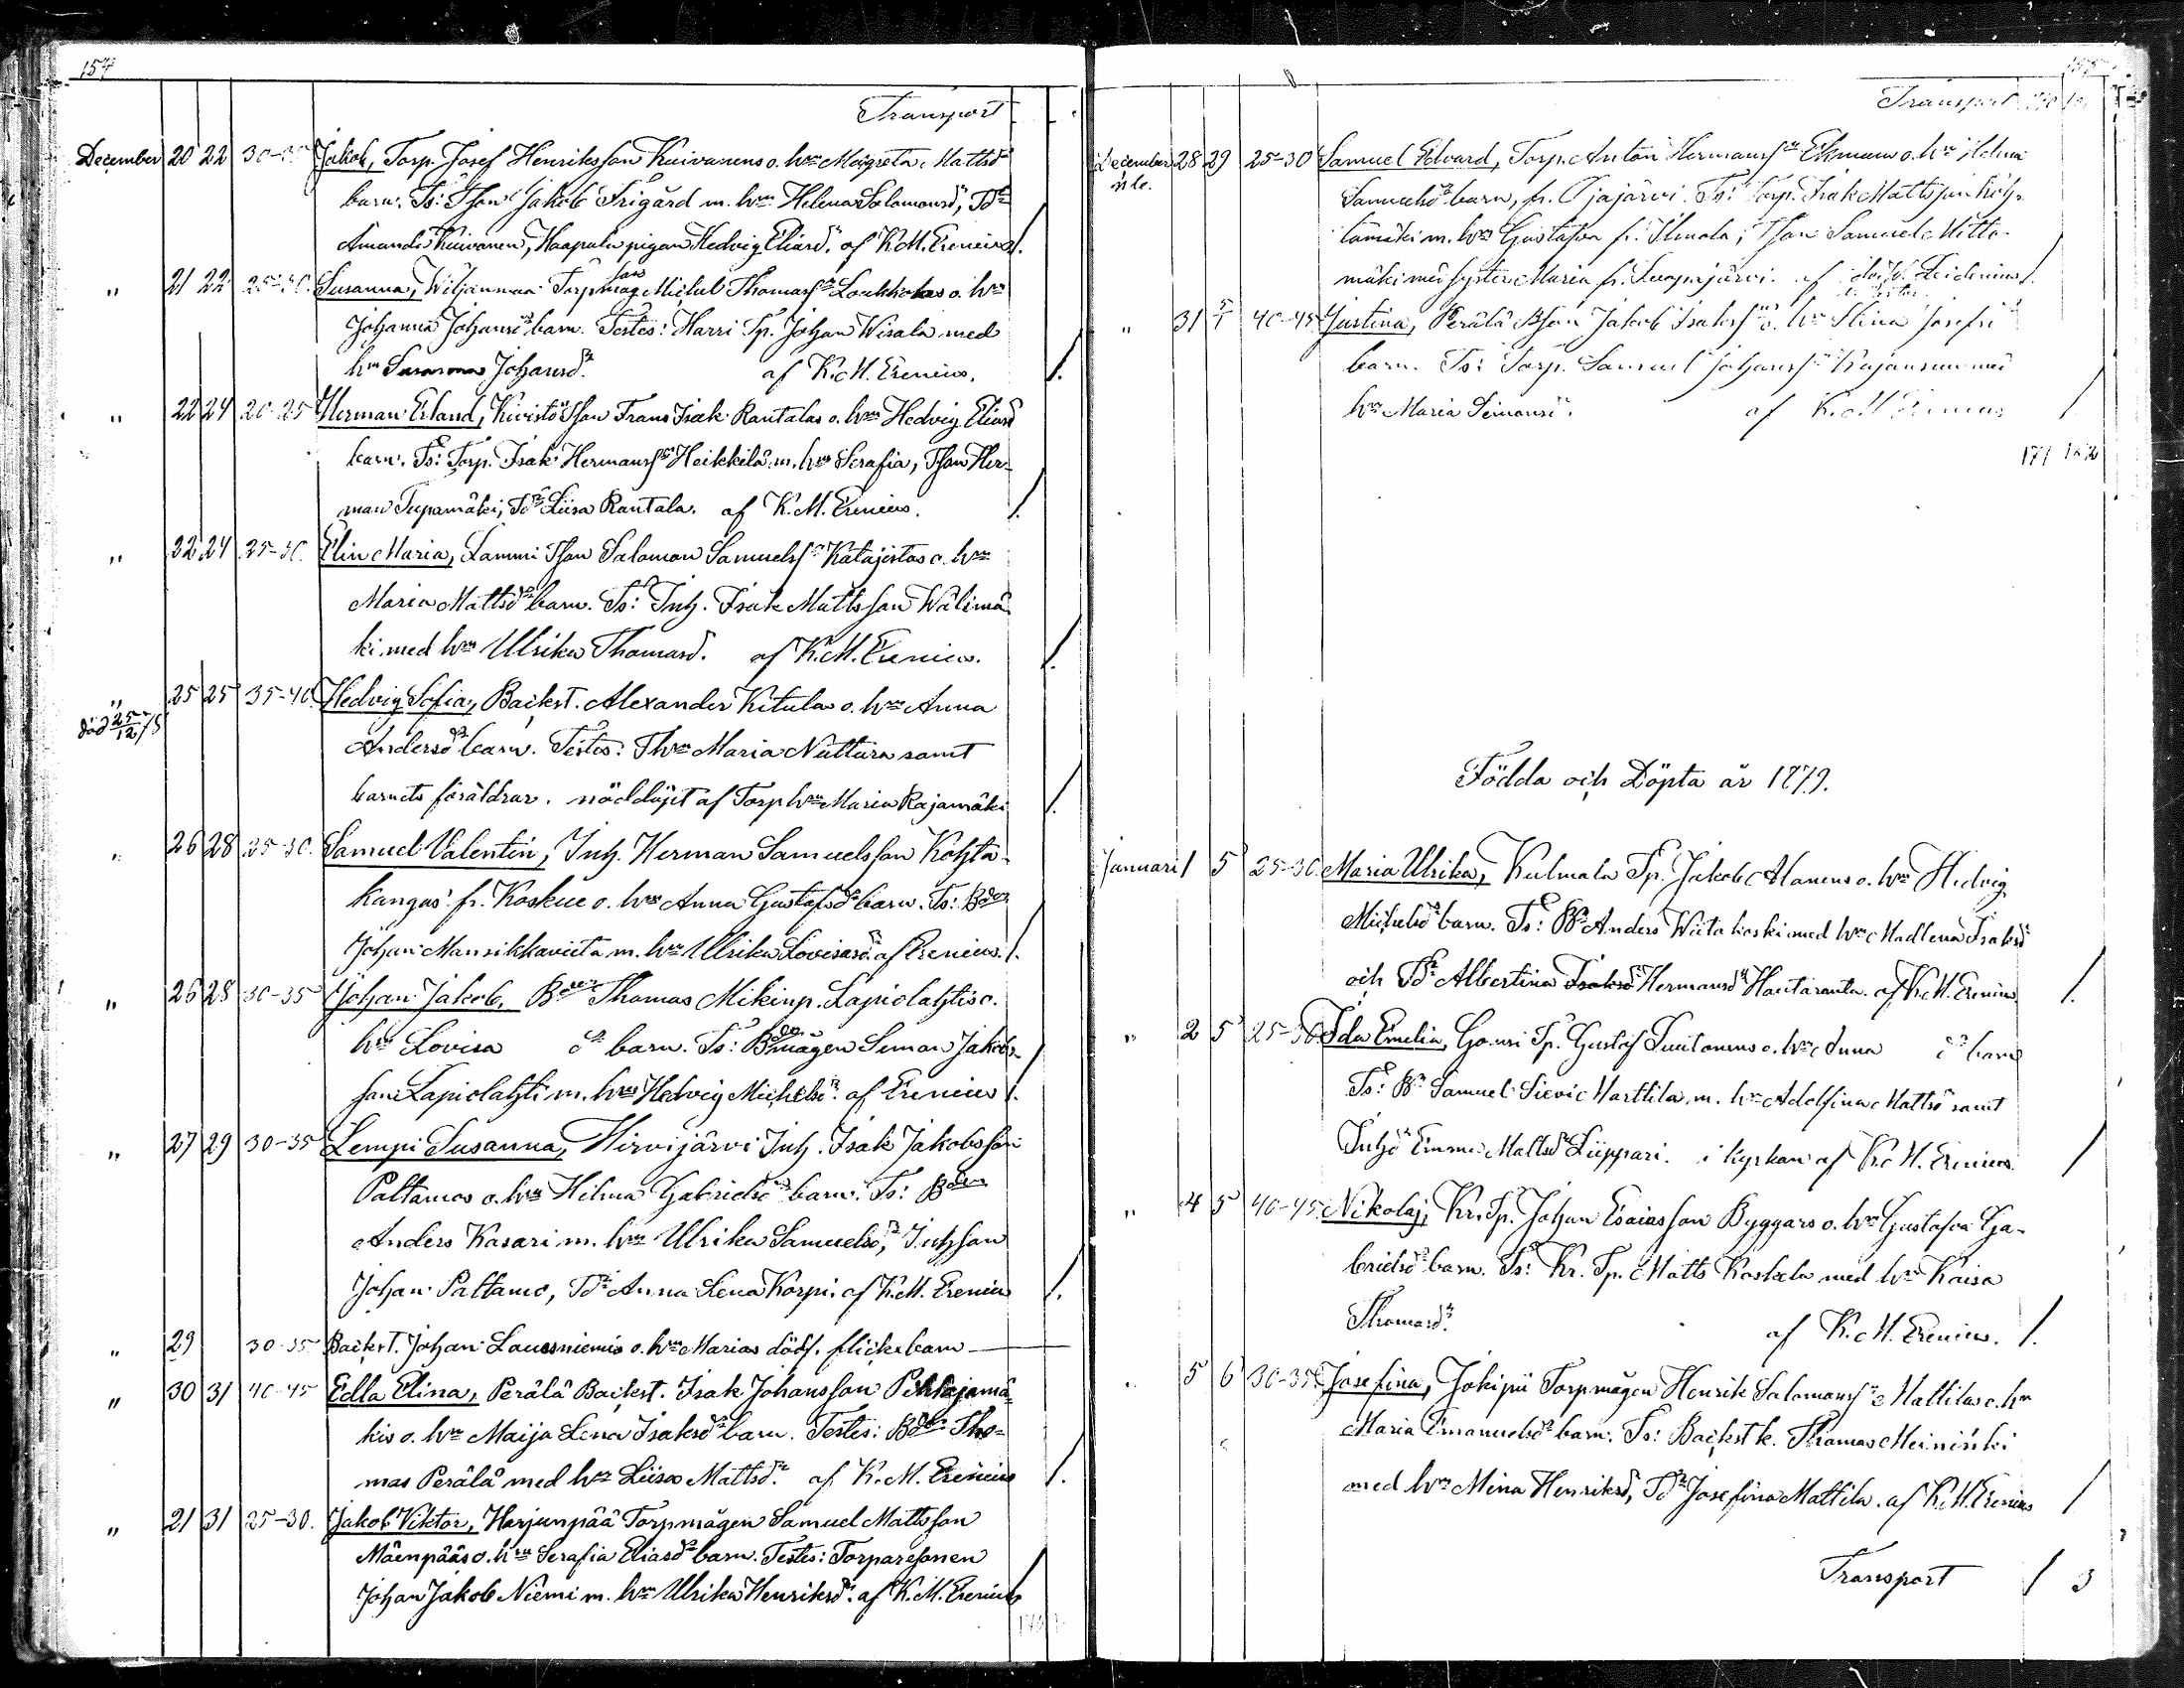 157
Transport
December 20 22 30-35 Jakob, Torp. Josef Henriksson Kuivanens o. hrn Margreta Mattsdr
barn. Ts: Tson Jakob Frigård m. hrn Helena Salomonsdr, Tdr
Amanda Kuivanen, Haapala pigan Hedvig Eliasdr. af K.M. Erenius /.
" 21 22 25-30. Susanna, Wiljanmaa Torpmåg Michel Thomassn Loukkolas o. hrn
son
Johanna Johansdr barn. Testes: Harri Tp. Johan Wisala med
hrn Susanna Johansdr. af K.M. Erenius. /.
" 22 24 20-25 Herman Erland, Kivistö Tson Frans Isak Rantalas o. hrn Hedvig Eliasdr
barn. Ts: Torp. Isak Hermanssn Heikkilä m. hrn Serafia, Tson Her-
man Tupamäki, Tdr Liisa Rantala. af K.M. Erenius. /.
" 22 24 25-30. Elin Maria, Lammi Tson Salomon Samuelssn Katajistos o. hrn
Maria Mattsdr barn. Ts: Inh. Isak Mattsson Wälimä-
ki med hrn Ulrika Thomasdr. af K.M. Erenius. /.
" 25 25 35-40. Hedvig Sofia, Backst. Alexander Kitulas o. hrn Anna
död 25/12 78
Andersdr barn. Testes: Thrn Maria Nuttura samt
barnets föräldrar. nöddöpt af Torphrn Maria Rajamäki /.
" 26 28 25-30. Samuel Valentin, Inh. Herman Samuelsson Kohta-
kangas fr. Koskue o. hrn Anna Gustafsdr barn. Ts: Bden
Johan Mansikkaviita m. hrn Ulrika Lovisasdr. af Erenius. /.
" 26 28 30-35 Johan Jakob, Thomas Mikinp. Lapiolahtis o.
hrn Lovisa dr barn. Ts: Bdemågen Simon Jakobs-
son Lapiolahti m. hrn Hedvig Michelsdr. af Erenius /.
" 27 29 30-35 Lempi Susanna, Hirvijärvi Inh. Isak Jakobsson
Paltamos o. hrn Hilma Gabrielsdr barn. Ts: Bden
Anders Kasari m. hrn Ulrika Samuelsdr, Inhson
Johan Paltamo, Tdr Anna Lena Korpi. af K.M. Erenius /.
" 29 30-35 Backst. Johan Lauosniemis o. hrn Marias dödf. flickebarn
" 30 31 40-45 Edla Elina, Perälä Backst. Isak Johansson Pihlajamä-
kis o. hrn Maija Lena Isaksdr barn. Testes: Bden Tho-
mas Perälä med hrn Liisa Mattsdr. af K.M. Erenius /.
" 21 31 25-30. Jakob Viktor, Harjunpää Torpmågen Samuel Mattsson
Mäenpääs o. hrn Serafia Eliasdr barn. Testes: Torparesonen
Johan Jakob Niemi m. hrn Ulrika Henriksdr. af K.M. Erenius /
Transport
December 28 29 25-30 Samuel Edvard, Torp. Anton Hermanssn Ekmans o. hrn Helena
Samuelsdr barn, fr. Ojajärvi. Ts: Torp. Isak Mattsson
lamäki m. hrn Gustafva fr. Ilmola; Tson Samuel Mitto-
mäki med syster Maria fr. af
" 31 40-45 Justina, Perälä Bson Jakob Isakssns o. hrn Stina Josefsdr
barn. Ts: Torp. Samuel Johanssn Rajansuu med
hrn Maria Simonsdr. af K.M. Erenius /
171
Födda och Döpta år 1879.
Januari 1 5 25-30. Maria Ulrika, Kulmala Tp. Jakob Alanens o. hrn Hedvig
Michelsdr barn. Ts: Bn Anders Wiitakoski med hrn Madlena Isaksdr
och Tdr Albertina Isaksdr Hermansdr Hautaranta. af K.M. Erenius /.
" 2 5 25-30 Ida Emelia, Tp. Gustaf Luutonens o. hrn Anna dr barn
Ts: Bn Samuel Sievi Marttila m. hrn Adolfina Mattsdr samt
Inhdr Emma Mattsdr Liippari. i kyrkan af K.M. Erenius /
" 4 5 40-45. Nikolaj, Kr. Tp. Johan Esaiasson Byggars o. hrn Gustafva Ga-
brielsdr barn. Ts: Kr. Tp. Matts Koskela med hrn Kaisa
Thomasdr. af K.M. Erenius. /.
" 5 6 30-35. Josefina, Jokipii Torpmågen Henrik Salomonssn Mattilas o. hrn
Maria Emanuelsdr barn. Ts: Backst k. Thomas Meininki
med hrn Mina Henriksdr, Tdr Josefina Mattila. af K.M. Erenius /
Transport / 3